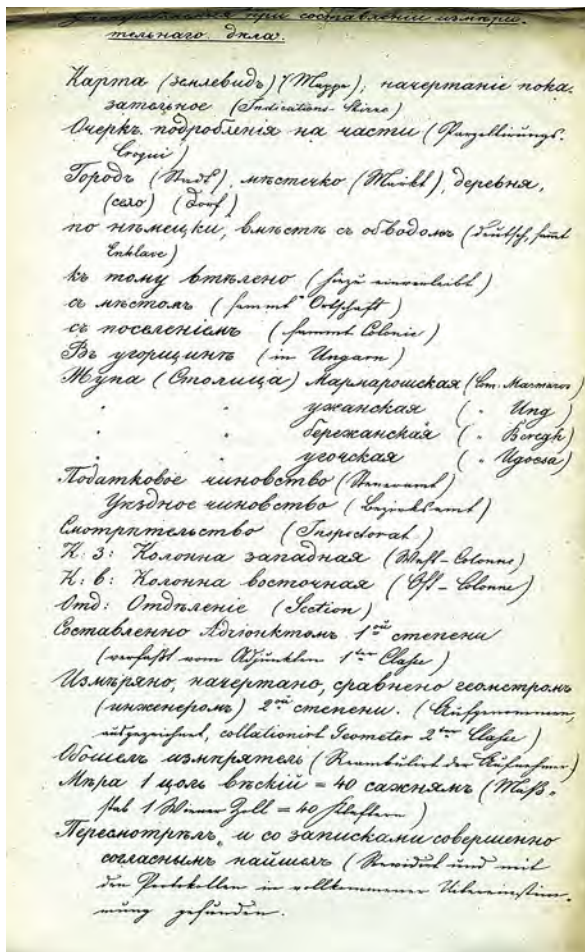 при составленіи измѣри-
тельнаго дѣла.
Карта (землевидъ) (Mappe), начертаніе пока-
зательное (Indications-Skizze)
Очеркъ подробленія на части (Parzellirungs-
Croqui)
Городъ (Stadt), мѣстечко (Markt), деревня,
(село) (Dorf)
по нѣмецки, вмѣстѣ съ обводомъ (deutsch, sammt
Enklave)
къ тому втѣлено (hiezu einverleibt)
съ мѣстомъ (sammt Ortschaft)
съ поселеніемъ (sammt Colonie)
Въ угорщинѣ (in Ungarn)
Жупа (Столица) Мармарошская (Com. Marmaros)
" " ужанская ( " Ung )
" " бережанская ( " Beregh )
" " угочская ( " Ugocsa )
Податковое чиновство (Steueramt)
Уѣздное чиновство (Bezirksamt)
Смотрительство (Inspectorat)
К: З: Колонна западная (West-Colonne)
К: в: Колонна восточная (Ost-Colonne)
Отд: Отдѣленіе (Section)
Составленно Адіюнктомъ 1ой степени
(verfaßt vom Adjunkten 1ter Classe)
Измѣряно, начертано, сравнено геометромъ
(инженеромъ) 2ой степени. (Aufgenommen,
ausgezeichnet, collationirt Geometer 2ter Classe)
Обошелъ измѣрятель (Reambulirt der Aufnehmer)
Мѣра 1 цоль вѣскій = 40 сажнямъ (Maß-
stab 1 Wiener Zoll = 40 Klaftern)
Пересмотрѣлъ и со записками совершенно
согласнымъ найшолъ (Revidirt und mit
den Protokollen in vollkommener Uibereinstim-
mung gefunden.